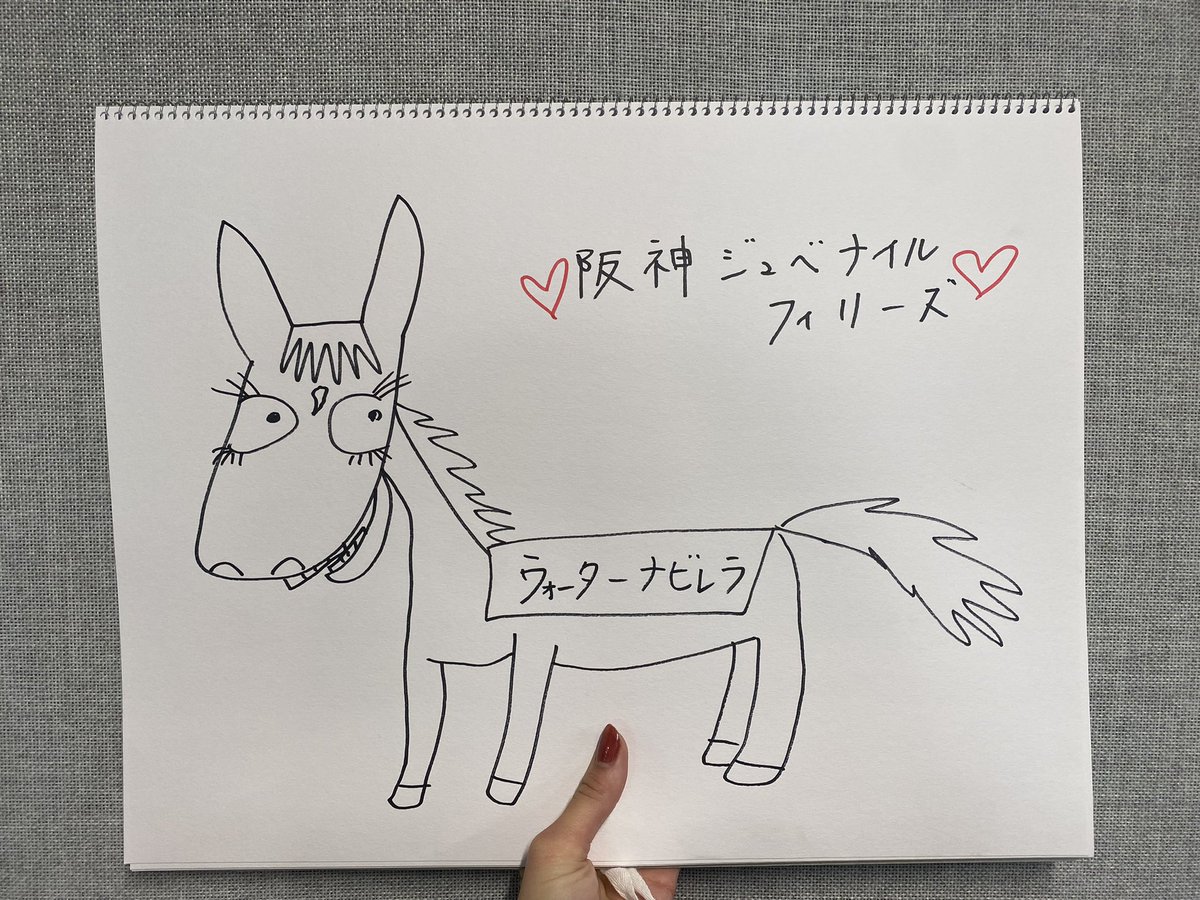 阪神ジュベナイル
フィリーズ
ウォーターナビレラ